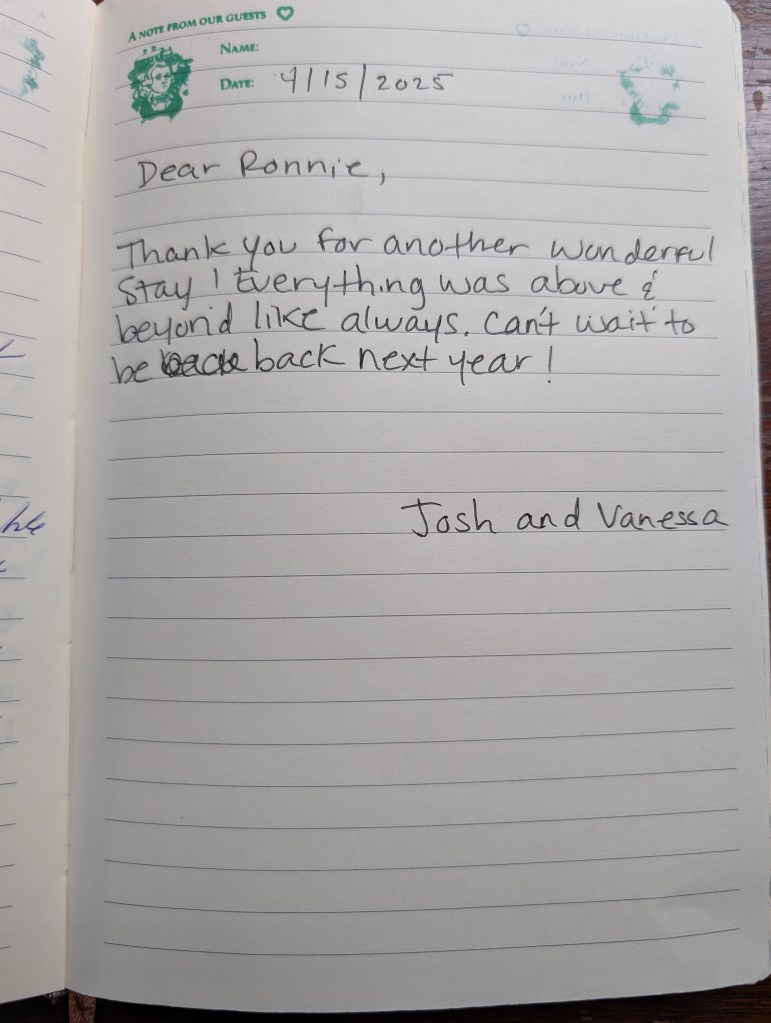 A NOTE FROM OUR GUESTS
NAME:
DATE: 9/15/2025
Dear Ronnie,
Thank you for another wonderful
stay! Everything was above &
beyond like always. Can't wait to
be back next year!
Josh and Vanessa